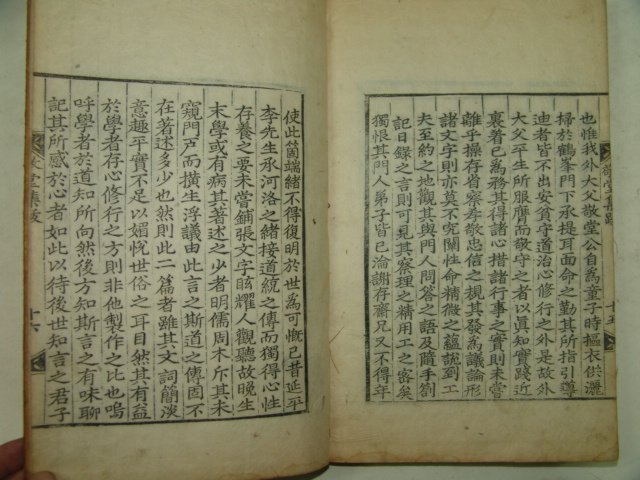 敬堂集跋
十五
也惟我外大父敬堂公自爲童子時摳衣供灑
掃於鶴峯門下承提耳面命之勤其所指引導
迪者皆不出安貧守道治心修行之外是故外
大父平生所服膺而敬守之者以眞知實踐近
裏着已爲務其得諸心措諸行事之實則未嘗
離乎操存省察孝敬忠信之規其發爲議論形
諸文字則亦莫不究關性命精微之蘊說到工
夫至約之地觀其與門人問答之語及隨手劄
記日錄之言則可見其察理之精用工之密矣
獨恨其門人弟子皆已淪謝存齋兄又不得年
使此箇端緖不得復明於世爲可慨已昔延平
李先生承河洛之緖接道統之傳而獨得心性
存養之要未嘗鋪張文字眩耀人觀聽故晚生
末學或有病其著述之少者明儒周木斥其未
窺門戶而橫生浮議由此言之斯道之傳固不
在著述多少也然則此二篇者雖其文詞簡淡
意趣平實不足以媚悅世俗之耳目然其有益
於學者存心修行之方則非他製作之比也嗚
呼學者於道知所向然後方知斯言之有味聊
記其所感於心者如此以待後世知言之君子
敬堂集跋
十六